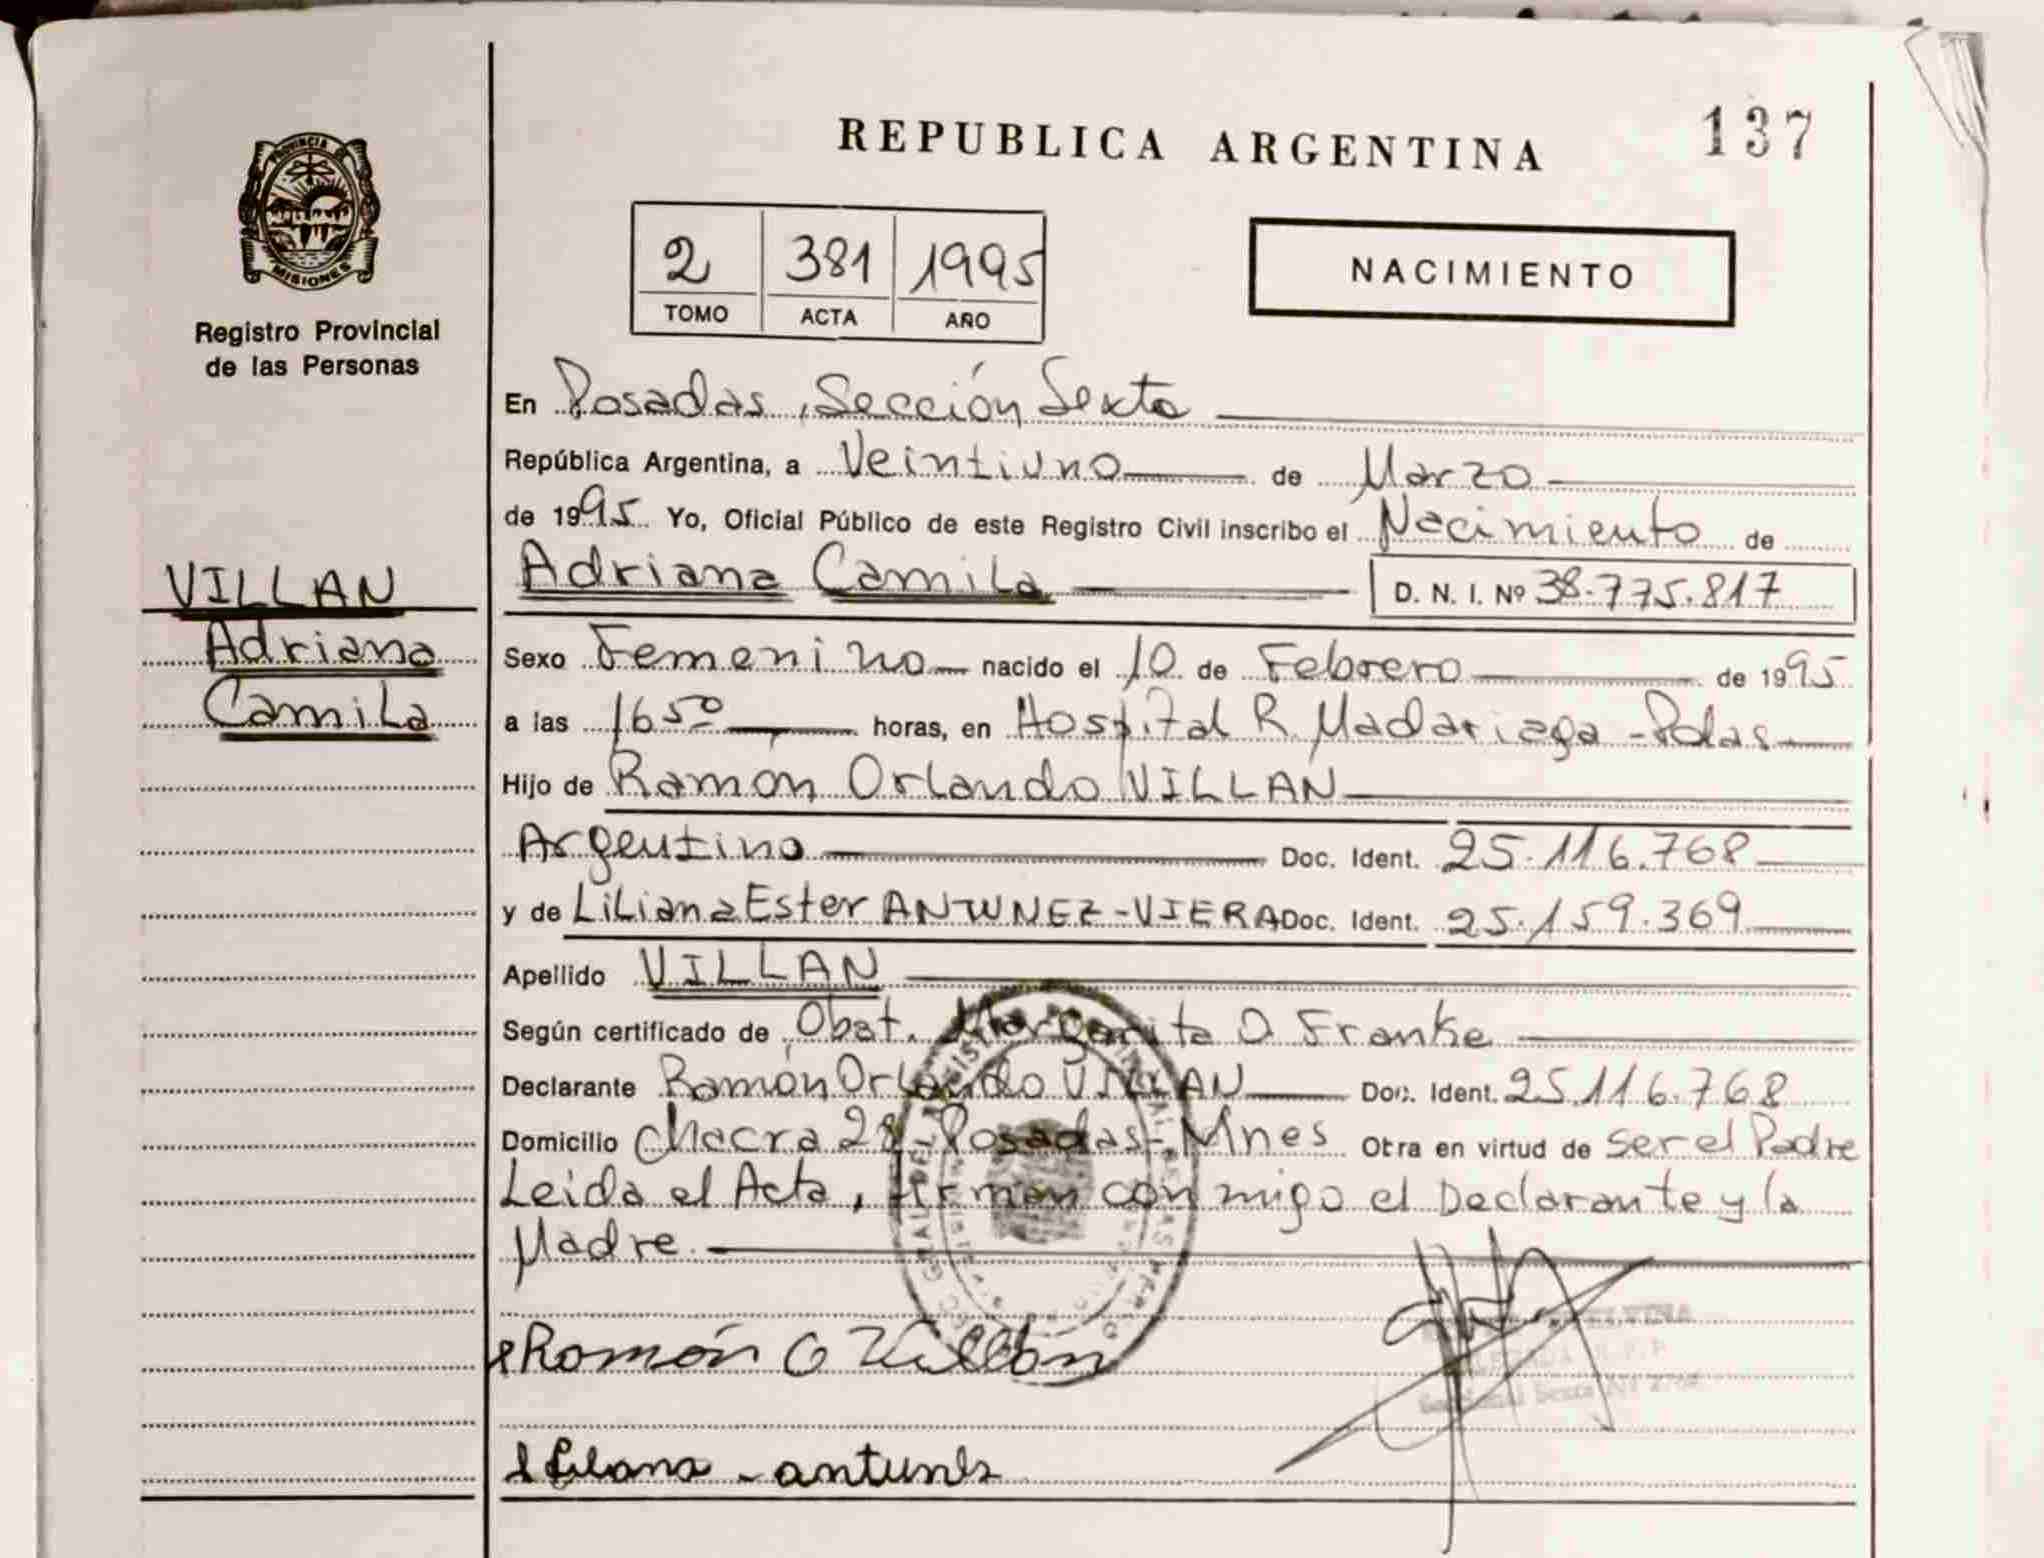 REPUBLICA ARGENTINA
137
PROVINCIA DE
MISIONES
Registro Provincial
de las Personas
2 381 1995
TOMO ACTA AÑO
NACIMIENTO
En Posadas, Sección Sexta
República Argentina, a Veintiuno de Marzo
de 1995 Yo, Oficial Público de este Registro Civil inscribo el Nacimiento de
Adriana Camila D. N. I. Nº 38.775.817
VILLAN
Adriana
Camila
Sexo Femenino nacido el 10 de Febrero de 1995
a las 16 50 horas, en Hospital R. Madariaga - Pdas
Hijo de Ramón Orlando VILLAN
Argentino Doc. Ident. 25.116.768
y de Liliana Ester ANTUNEZ-VIERA Doc. Ident. 25.159.369
Apellido VILLAN
Según certificado de Obst. Margarita O. Franke
Declarante Ramón Orlando VILLAN Doc. Ident. 25.116.768
Domicilio Chacra 28 - Posadas - Mnes Obra en virtud de ser el Padre
Leida el Acta, firman conmigo el Declarante y la
Madre.
Ramón O Villán
Liliana - antunez